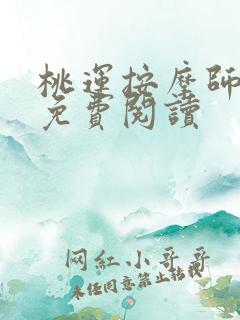 桃運按摩師
免費閱讀
网紅小哥哥
未任同意禁止转载